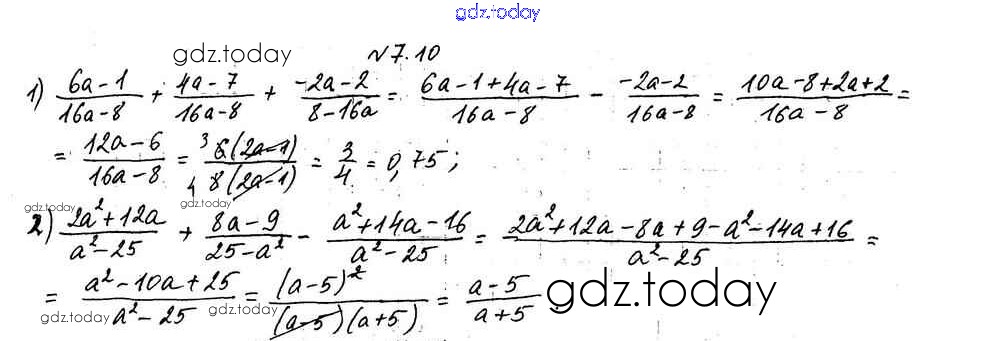 gdz.today
gdz.today
№7.10
1) (6a-1)/(16a-8) + (4a-7)/(16a-8) + (-2a-2)/(8-16a) = (6a-1+4a-7)/(16a-8) - (-2a-2)/(16a-8) = (10a-8+2a+2)/(16a-8) =
= (12a-6)/(16a-8) = 3 6(2a-1)/4 8(2a-1) = 3/4 = 0,75;
gdz.today
gdz.today
2) (2a²+12a)/(a²-25) + (8a-9)/(25-a²) - (a²+14a-16)/(a²-25) = (2a²+12a-8a+9-a²-14a+16)/(a²-25) =
= (a²-10a+25)/(a²-25) = (a-5)²/(a-5)(a+5) = (a-5)/(a+5)
gdz.today
gdz.today
gdz.today